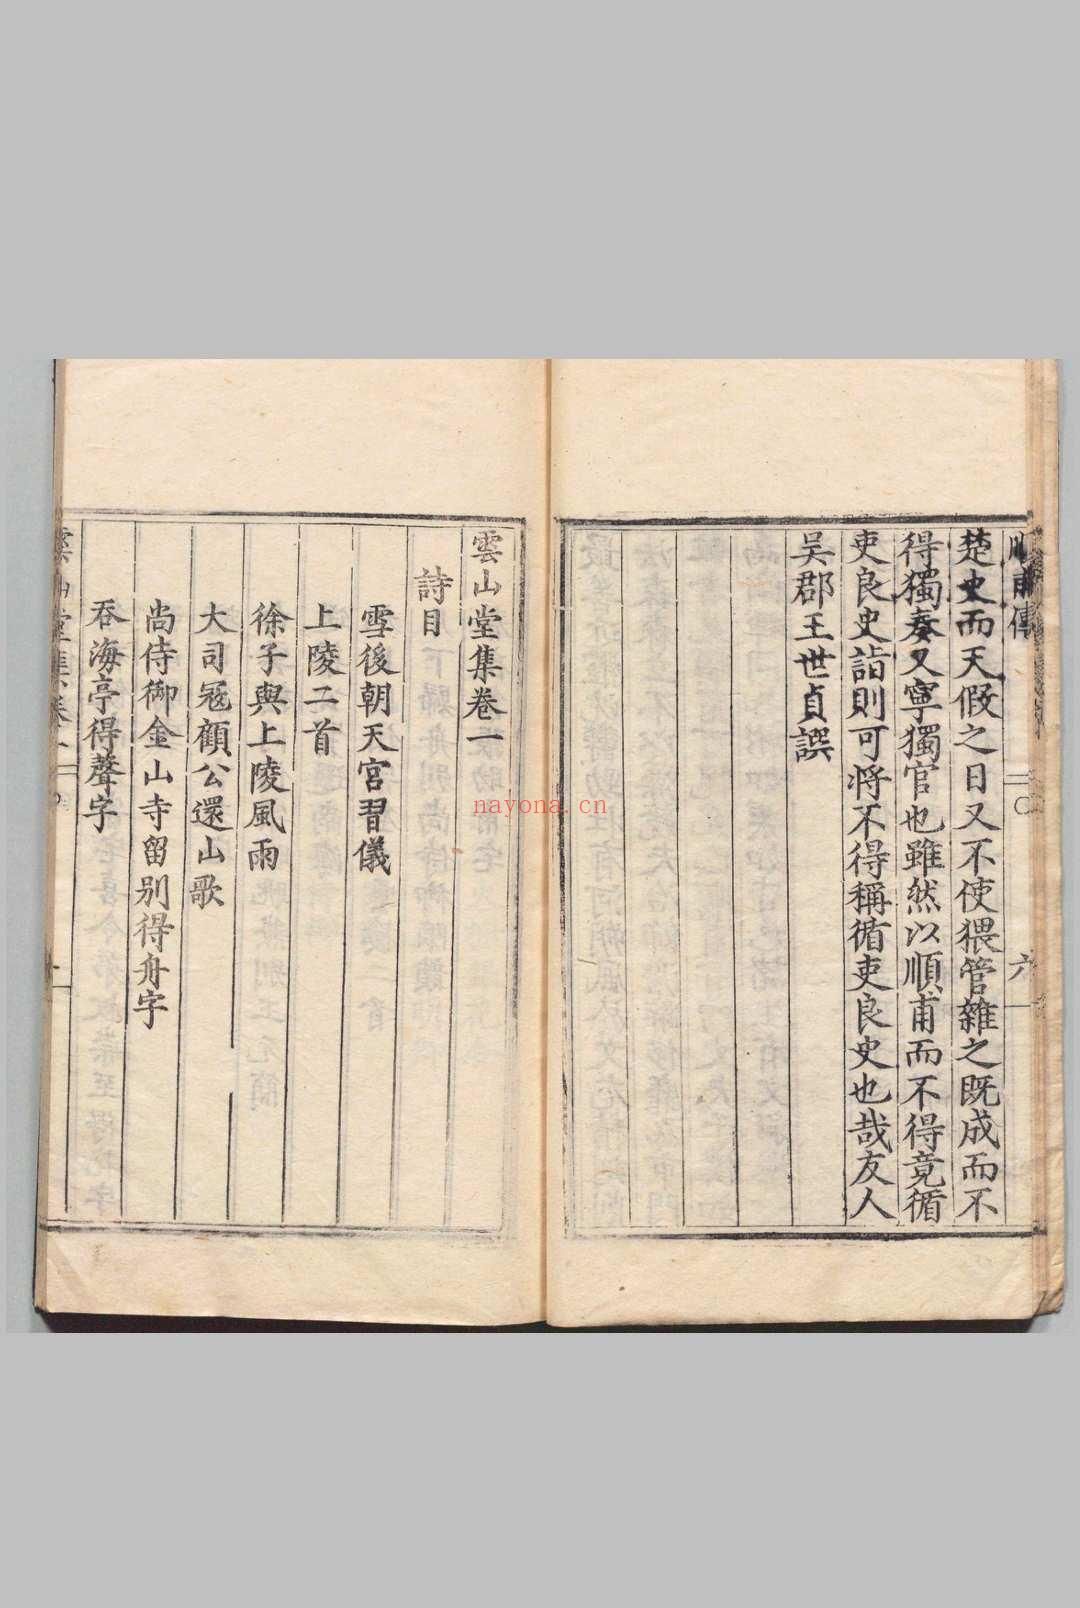 楚史而天假之日又不使猥管雜之既成而不
得獨奏又寧獨官也雖然以順甫而不得竟循
吏良史詣則可將不得稱循吏良史也哉友人
吳郡王世貞譔
六
雲山堂集卷一
詩目
雪後朝天宮習儀
上陵二首
徐子與上陵風雨
大司冦顧公還山歌
尚侍御金山寺留別得舟字
吞海亭得聲字
nayona.cn